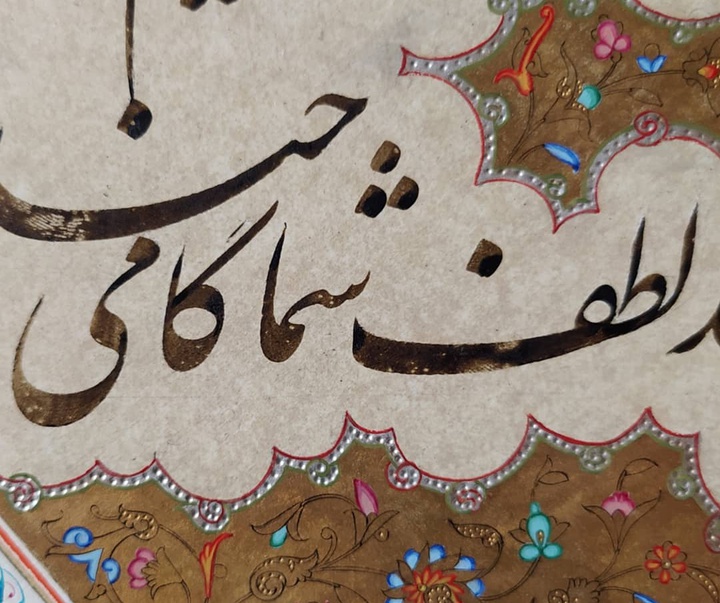 لطف شما گامی